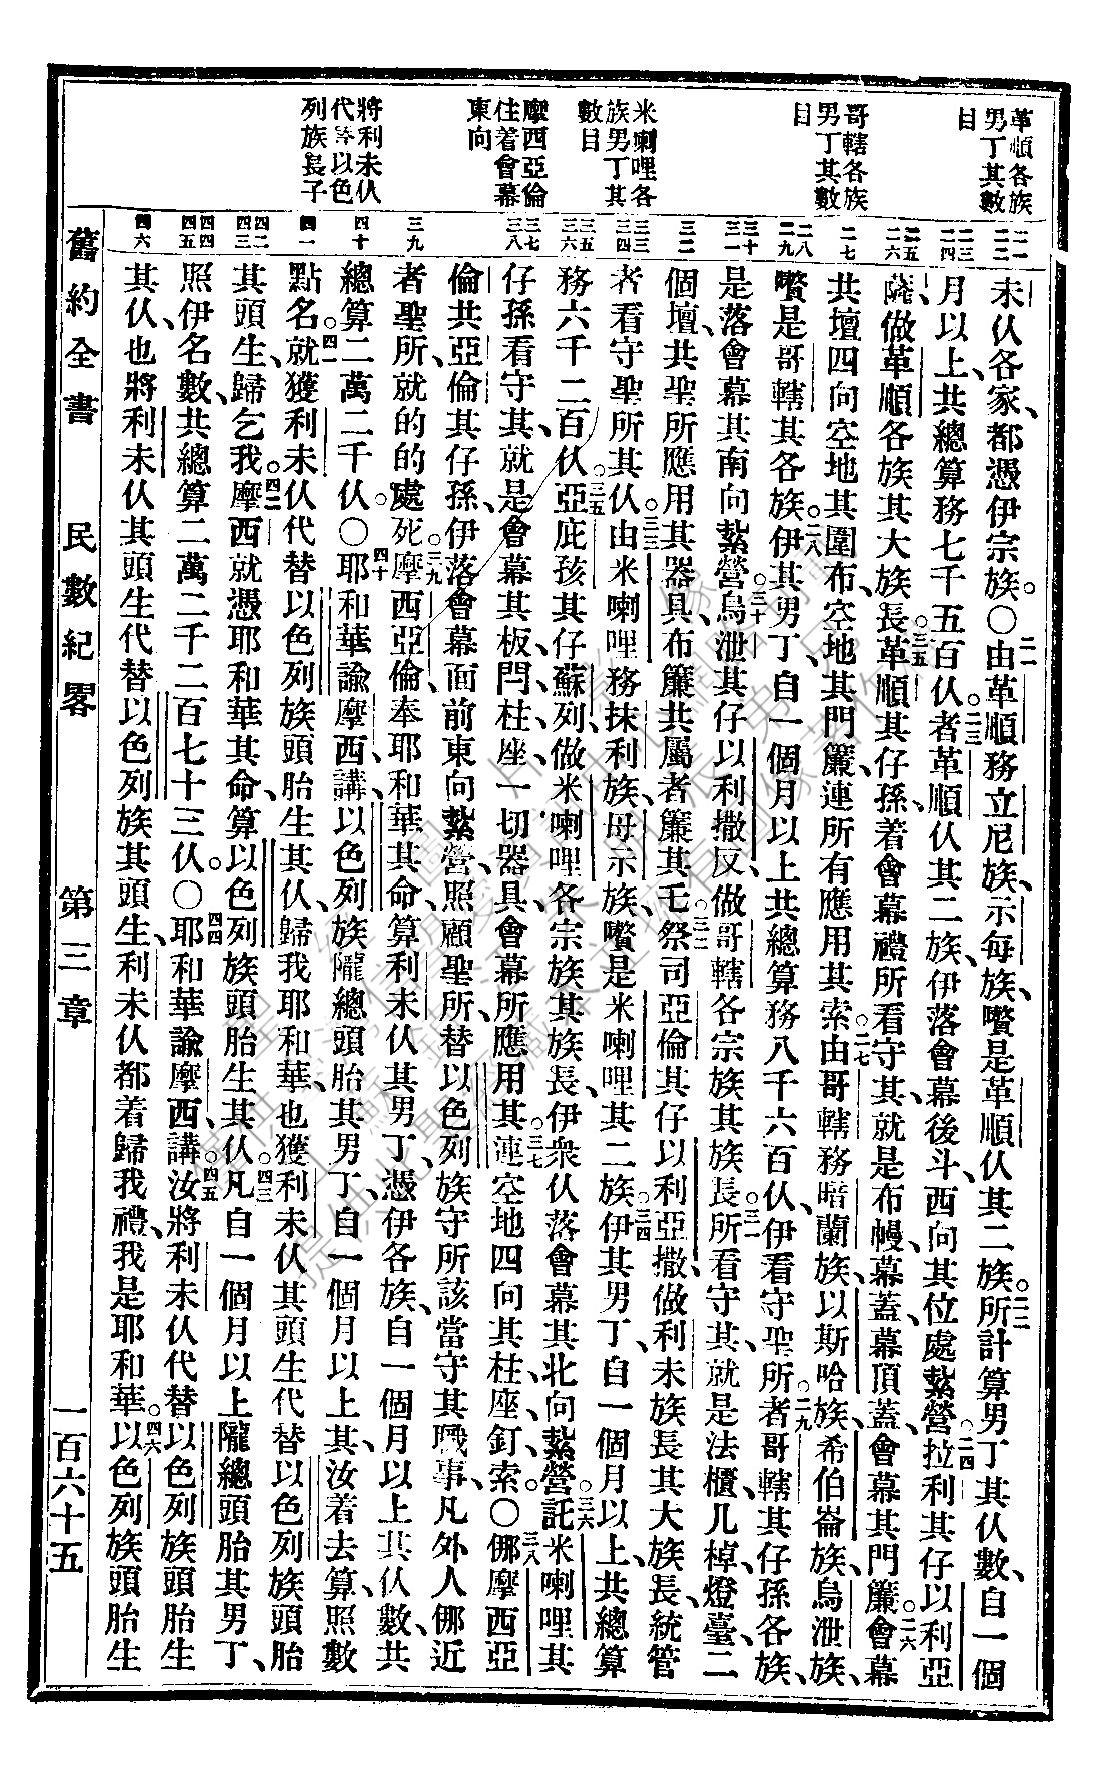 革順各族
男丁其數
目
哥轄各族
男丁其數
目
米喇哩各
族男丁其
數目
摩西亞倫
住着會幕
東向
將利未仈
代替以色
列族長子
二一
二二
二三
二四
二五
二六
二七
二八
二九
三十
三一
三二
三三
三四
三五
三六
三七
三八
三九
四十
四一
四二
四三
四四
四五
四六
未仈各家、都憑伊宗族。〇二一由革順務立尼族、示每族、嚽是革順仈其二族。二二所計算男丁其仈數、自一個
月以上、共總算務七千五百仈。二三者革順仈其二族、伊落會幕後斗、西向其位處紮營。二四拉利其仔以利亞
薩、做革順各族其大族長。二五革順其仔孫、着會幕禮所看守其、就是布幔、幕蓋、幕頂蓋、會幕其門簾。二六會幕
共壇四向空地其圍布、空地其門簾、連所有應用其索。二七由哥轄務暗蘭族、以斯哈族、希伯崙族、烏泄族、
嚽是哥轄其各族。二八伊其男丁、自一個月以上、共總算務八千六百仈、伊看守聖所。二九者哥轄其仔孫各族、
是落會幕其南向紮營。三十烏泄其仔以利撒反、做哥轄各宗族其族長。三一所看守其、就是法櫃、几、棹、燈臺、二
個壇、共聖所應用其器具、布簾、共屬者簾其乇。三二祭司亞倫其仔以利亞撒、做利未族長其大族長、統管
者看守聖所其仈。三三由米喇哩務抹利族、母示族、嚽是米喇哩其二族。三四伊其男丁、自一個月以上、共總算
務六千二百仈。三五亞庇孩其仔蘇列、做米喇哩各宗族其族長、伊衆仈落會幕其北向紮營。三六託米喇哩其
仔孫看守其、就是會幕其板、閂、柱、座、一切器具、會幕所應用其。三七連空地四向其柱、座、釘、索。〇三八儚摩西亞
倫、共亞倫其仔孫、伊落會幕面前東向紮營、照顧聖所、替以色列族守所該當守其職事、凡外人儚近
者聖所、就的的處死。三九摩西亞倫奉耶和華其命、算利未仈其男丁、憑伊各族、自一個月以上其仈數、共
總算二萬二千仈。〇四十耶和華諭摩西、講、以色列族隴總頭胎其男丁、自一個月以上其、汝着去算、照數
點名。四一就獲利未仈代替以色列族頭胎生其仈、歸我耶和華、也獲利未仈其頭生代替以色列族頭胎
其頭生、歸乞我。四二摩西就憑耶和華其命、算以色列族頭胎生其仈。四三凡自一個月以上隴總頭胎其男丁、
照伊名數、共總算二萬二千二百七十三仈。〇四四耶和華諭摩西、講。四五汝將利未仈代替以色列族頭胎生
其仈、也將利未仈其頭生代替以色列族其頭生、利未仈都着歸我禮、我是耶和華。四六以色列族頭胎生
舊約全書　民數紀畧　第三章　一百六十五